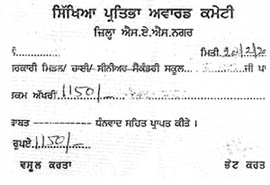 ਸਿੱਖਿਆ ਪ੍ਰਤਿਭਾ ਅਵਾਰਡ ਕਮੇਟੀ
ਜ਼ਿਲ੍ਹਾ ਐਸ.ਏ.ਐਸ.ਨਗਰ
ਮਿਤੀ
ਸਰਕਾਰੀ ਮਿਡਲ/ ਹਾਈ/ ਸੀਨੀਅਰ ਸੈਕੰਡਰੀ ਸਕੂਲ
ਰਕਮ ਅੱਖਰੀ 1150/-
ਬਾਬਤ ਧੰਨਵਾਦ ਸਹਿਤ ਪ੍ਰਾਪਤ ਕੀਤੇ ।
ਰੁਪਏ 1150/-
ਵਸੂਲ ਕਰਤਾ ਭੇਂਟ